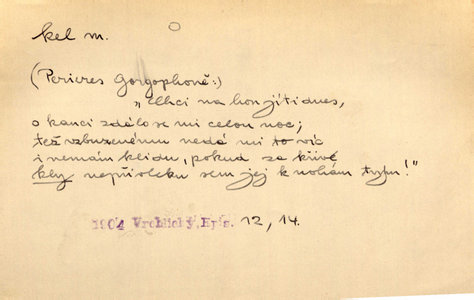 kel m.
(Perieres Gorgophoně:)
„Chci na hon jíti dnes,
o kanci zdálo se mi celou noc;
též vzbuzenému nedá mi to víc
i nemám klidu, pokud za křivé
kly nepřivleku sem jej k nohám tvým!"
1904 Vrchlický, Epis. 12, 14.